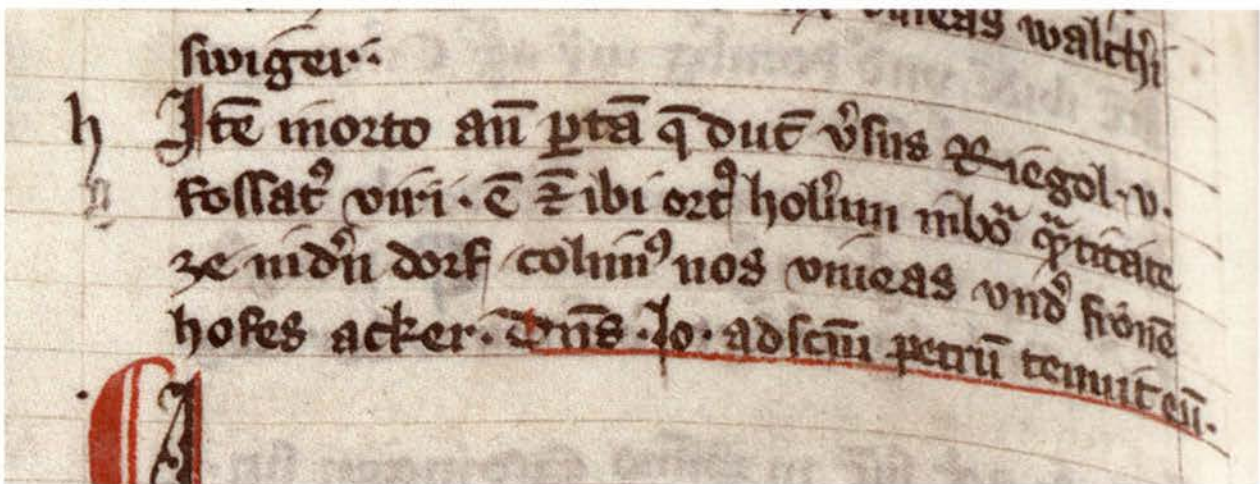 vineas walch̄i
swiger.
h Itē in orto an̄ p̱tā q̄ duc̄ v̓sus Riegol. v.
fossat᷒ viri. ē ⁊̄ ibi ort᷒ hol̓um in
ze nid̓n dorf colim᷒ nos vineas vnd̓ frōnē
hofes acker. Dn̄s. Jo. ad scm̄ petrū tenuit eū.
A